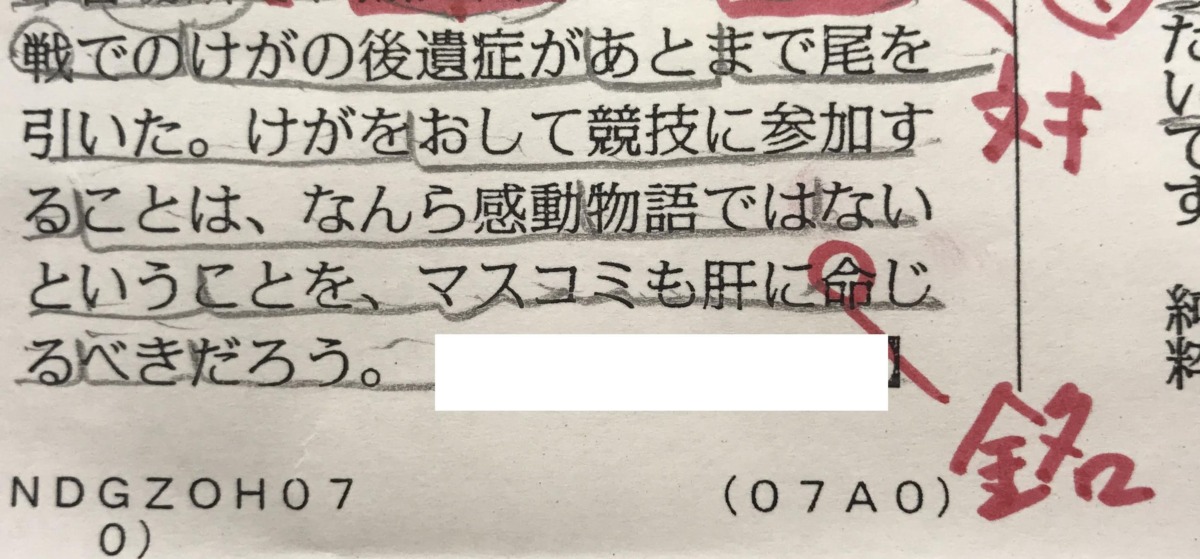 戦でのけがの後遺症があとまで尾を
引いた。けがをおして競技に参加す
ることは、なんら感動物語ではない
ということを、マスコミも肝に命じ
るべきだろう。
対
銘
NDGZOH07
(07A0)
0)
たいです
純粋